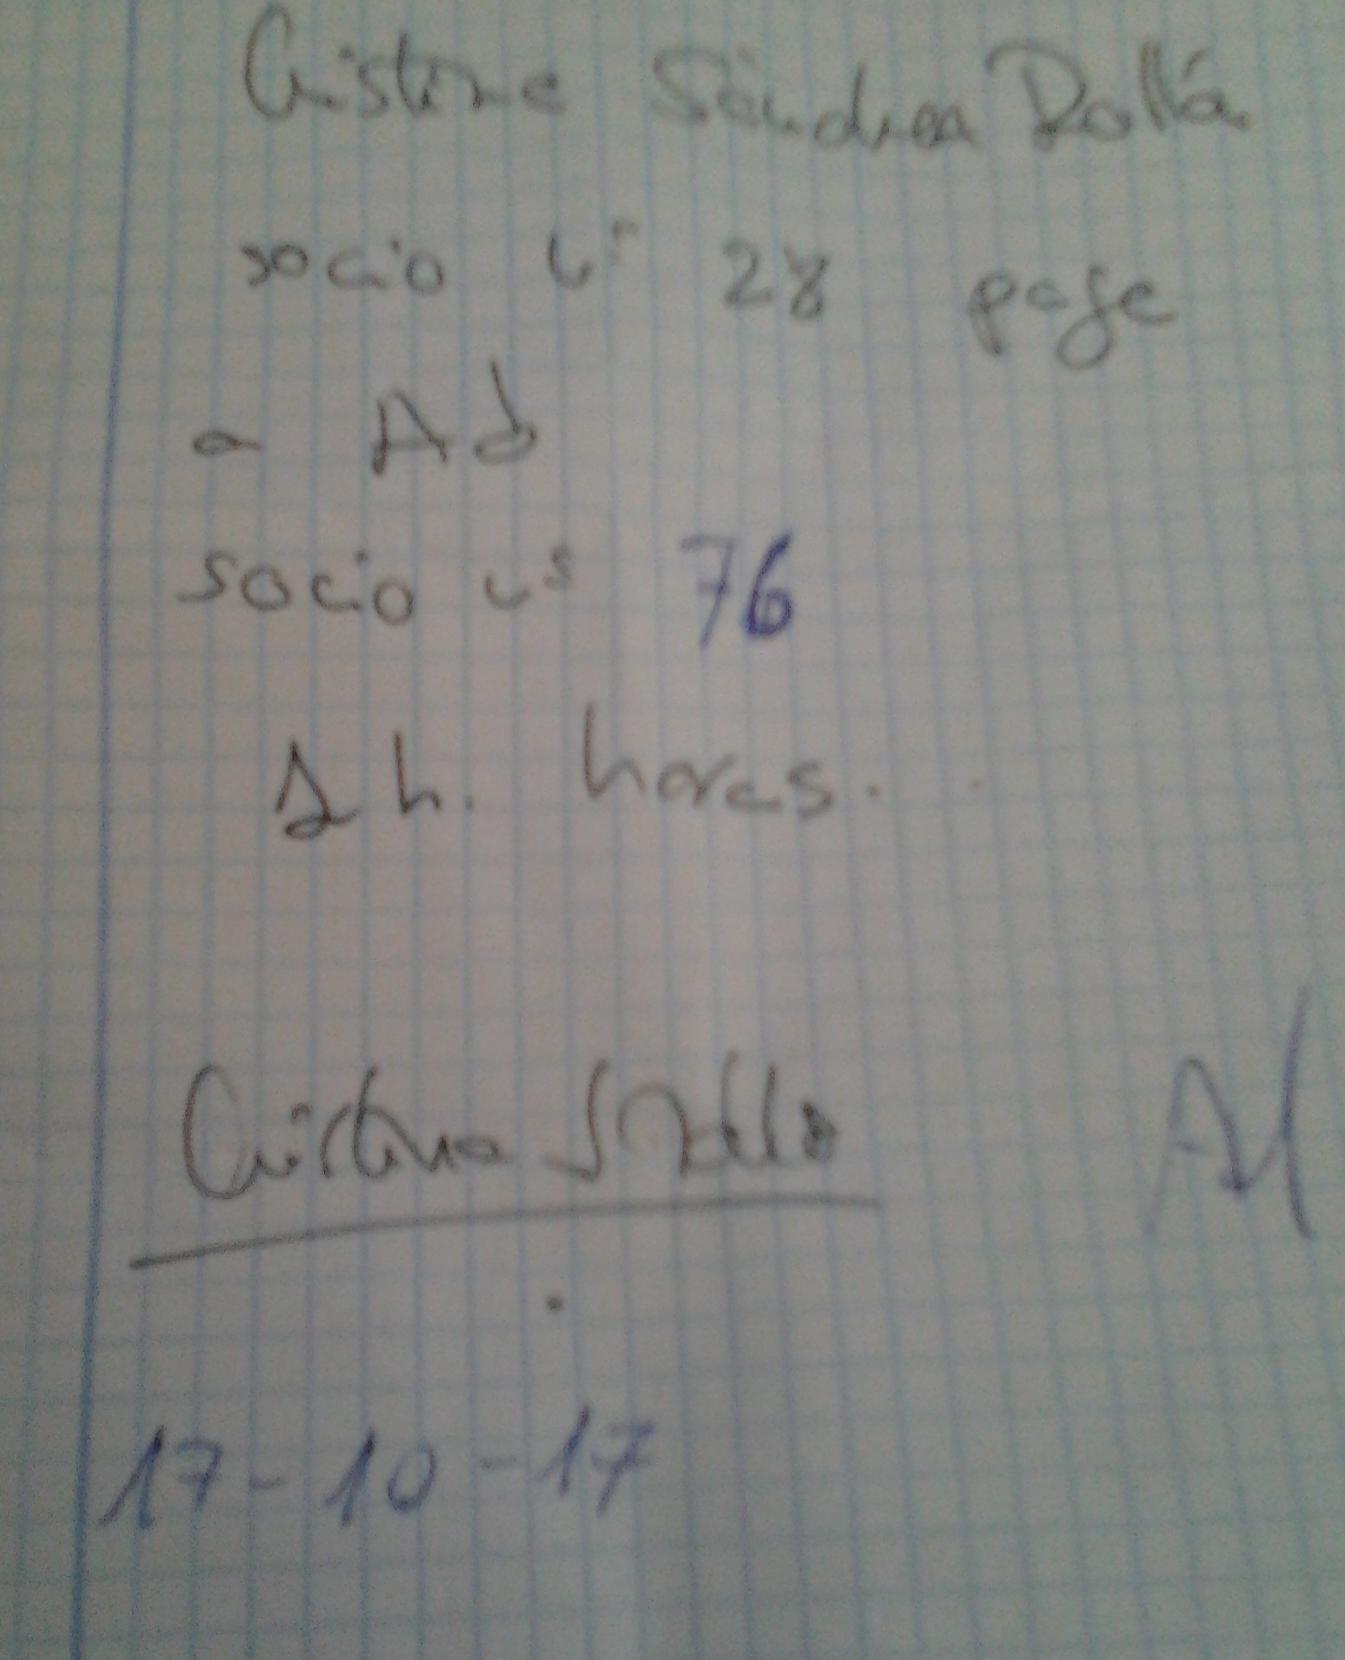 Cristina Sánchez Dollá
socio nº 28 paga
a Ad
socio nº 76
1 h. horas.
Cristina
17-10-17